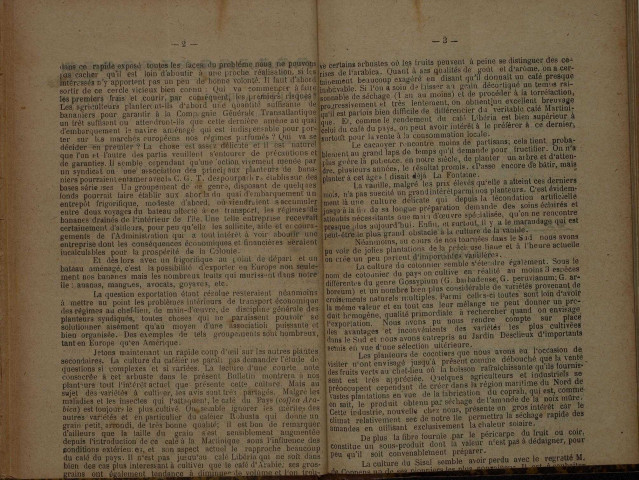 — 2 —
dans ce rapide exposé toutes les faces du problème nous ne pouvons
pas cacher qu'il est loin d'aboutir à une proche réalisation, si les
intéressés n'y apportent pas un peu de bonne volonté. Il faut d'abord
sortir de ce cercle vicieux bien connu : Qui va commencer à faire
les premiers frais et courir, par conséquent, les premiers risques ?
Les agriculteurs planteront-ils d'abord une quantité suffisante de
bananiers pour garantir à la Compagnie Générale Transatlantique
un fret suffisant ou attendront-ils que cette dernière amène au port
d'embarquement le navire aménagé qui est indispensable pour por-
ter sur les marchés européens nos régimes parfumés ? Qui va se
décider en premier ? La chose est assez délicate et il est naturel
que l'un et l'autre des partis veuillent s'entourer de précautions et
de garanties. Il semble cependant qu'une action vivement menée par
un syndicat ou une association des principaux planteurs de bana-
niers pourraient entamer avec la C. G. T. des pourparlers établis sur des
bases sérieuses. Un groupement de ce genre, disposant de quelques
fonds pourrait faire établir aux abords du quai d'embarquement un
entrepôt frigorifique, modeste d'abord, où viendraient s'accumuler
entre deux voyages du bateau affecté à ce transport, les régimes de
bananes drainés de l'intérieur de l'île. Une telle entreprise recevrait
certainement d'ailleurs, pour peu qu'elle les sollicite, aide et encoura-
gements de l'Administration qui a tout intérêt à voir aboutir une
entreprise dont les conséquences économiques et financières seraient
incalculables pour la prospérité de la Colonie.
Et dès lors avec un frigorifique au point de départ et un
bateau aménagé, c'est la possibilité d'exporter en Europe non seule-
ment nos bananes mais les nombreux fruits qui mûrissent dans notre
île : ananas, mangues, avocats, goyaves, etc.
La question exportation étant réglée resteraient néanmoins
à mettre au point les problèmes intérieurs de transport économique
des régimes au chef-lieu, de main-d'œuvre, de discipline générale des
planteurs syndiqués, toutes choses qui ne paraissent pouvoir se
solutionner aisément qu'au moyen d'une association puissante et
bien organisée. Des exemples de tels groupements sont nombreux,
tant en Europe qu'en Amérique.
Jetons maintenant un rapide coup d'œil sur les autres plantes
secondaires. La culture du caféier ne paraît pas demander l'étude de
questions si complexes et si variées. La lecture d'une courte note
consacrée à cet arbuste dans le présent Bulletin montrera à nos
planteurs tout l'intérêt actuel que présente cette culture. Mais au
sujet des variétés à cultiver, les avis sont très partagés. Malgré les
maladies et les insectes qui l'attaquent, le café du Pays (coffea Ara-
bica) est toujours le plus cultivé. On semble ignorer les mérites des
autres variétés et en particulier du caféier Robusta qui donne un
grain petit, arrondi, de très bonne qualité; il est bon de remarquer
d'ailleurs que la taille du grain s'est sensiblement augmentée
depuis l'introduction de ce café à la Martinique sous l'influence des
conditions extérieures, et son aspect actuel le rapproche beaucoup
du café du pays. Il n'est pas jusqu'au café Libéria qui ne soit dans
bien des cas plus intéressant à cultiver que le café d'Arabie; ses gros-
grains ont également tendance à diminuer de volume et l'on trou-
— 3 —
ve certains arbustes où les fruits peuvent à peine se distinguer des ce-
rises de l'arabica. Quant à ses qualités de goût et d'arôme, on a cer-
tainement beaucoup exagéré en disant qu'il donnait un café presque
imbuvable. Si l'on a soin de laisser au grain décortiqué un temps rai-
sonnable de séchage (1 an au moins) et de procéder à la torréfaction,
progressivement et très lentement, on obtient un excellent breuvage
qu'il est parfois bien difficile de différencier du véritable café Martini-
que. Et, comme le rendement du café Libéria est bien supérieur à
celui du café du pays, on peut avoir intérêt à le préférer à ce dernier,
surtout pour la vente à la consommation locale.
Le cacaoyer rencontre moins de partisans; cela tient proba-
blement au grand laps de temps qu'il demande pour fructifier. On n'a
plus guère la patience, en notre siècle, de planter un arbre et d'atten-
dre, plusieurs années, le résultat promis. «Passe encore de bâtir, mais
planter à cet âge ! disait déjà La Fontaine.
La vanille, malgré les prix élevés qu'elle a atteint ces derniers
mois, n'a pas suscité un grand intérêt parmi nos planteurs. C'est évidem-
ment là une culture délicate qui depuis la fécondation artificielle
jusqu'à la fin de sa longue préparation demande des soins éclairés et
minutieux nécessitant une main-d'œuvre spécialisée, qu'on ne rencontre
presque plus aujourd'hui. Enfin, et surtout, il y a le maraudage qui est
peut-être le plus grand obstacle à la culture de la vanille.
Néanmoins, au cours de nos tournées dans le Sud nous avons
pu voir de jolies plantations de la précieuse liane et à l'heure actuelle
on crée un peu partout d'importantes vanillères.
La culture du cotonnier semble s'étendre également. Sous le
nom de cotonnier du pays on cultive en réalité au moins 3 espèces
différentes du genre Gossypium (G. barbadense, G. peruvianum, G. ar-
boreum) et un nombre bien plus considérable de variétés provenant de
croisements naturels multiples. Parmi celles-ci toutes sont loin d'avoir
la même valeur et en tout cas leur mélange ne peut donner un pro-
duit homogène, qualité primordiale à rechercher quand on envisage
l'exportation. Nous avons pu nous rendre compte sur place
des avantages et inconvénients des variétés les plus cultivées
dans le Sud et nous avons entrepris au Jardin Desclieux d'importants
essais en vue d'une sélection ultérieure.
Les planteurs de cocotiers que nous avons eu l'occasion de
visiter n'ont envisagé jusqu'à présent comme débouché que la vente
des fruits verts au chef-lieu où la boisson rafraîchissante qu'ils fournis-
sent est très appréciée. Quelques agriculteurs et industriels se
préoccupent cependant de créer dans la région maritime du Nord de
vastes plantations en vue de la fabrication du coprah, qui est, comme
on sait, le produit obtenu par séchage de l'amande de la noix mûre.
Cette industrie, nouvelle chez nous, présente un gros intérêt car le
climat relativement sec de notre île permettra la séchage rapide des
amandes en utilisant exclusivement la chaleur solaire.
De plus la fibre fournie par le péricarpe du fruit ou coir,
constitue un sous-produit dont la valeur n'est pas à dédaigner, pour
peu qu'il soit convenablement préparer.
La culture du Sisal semble avoir perdu avec le regretté M.